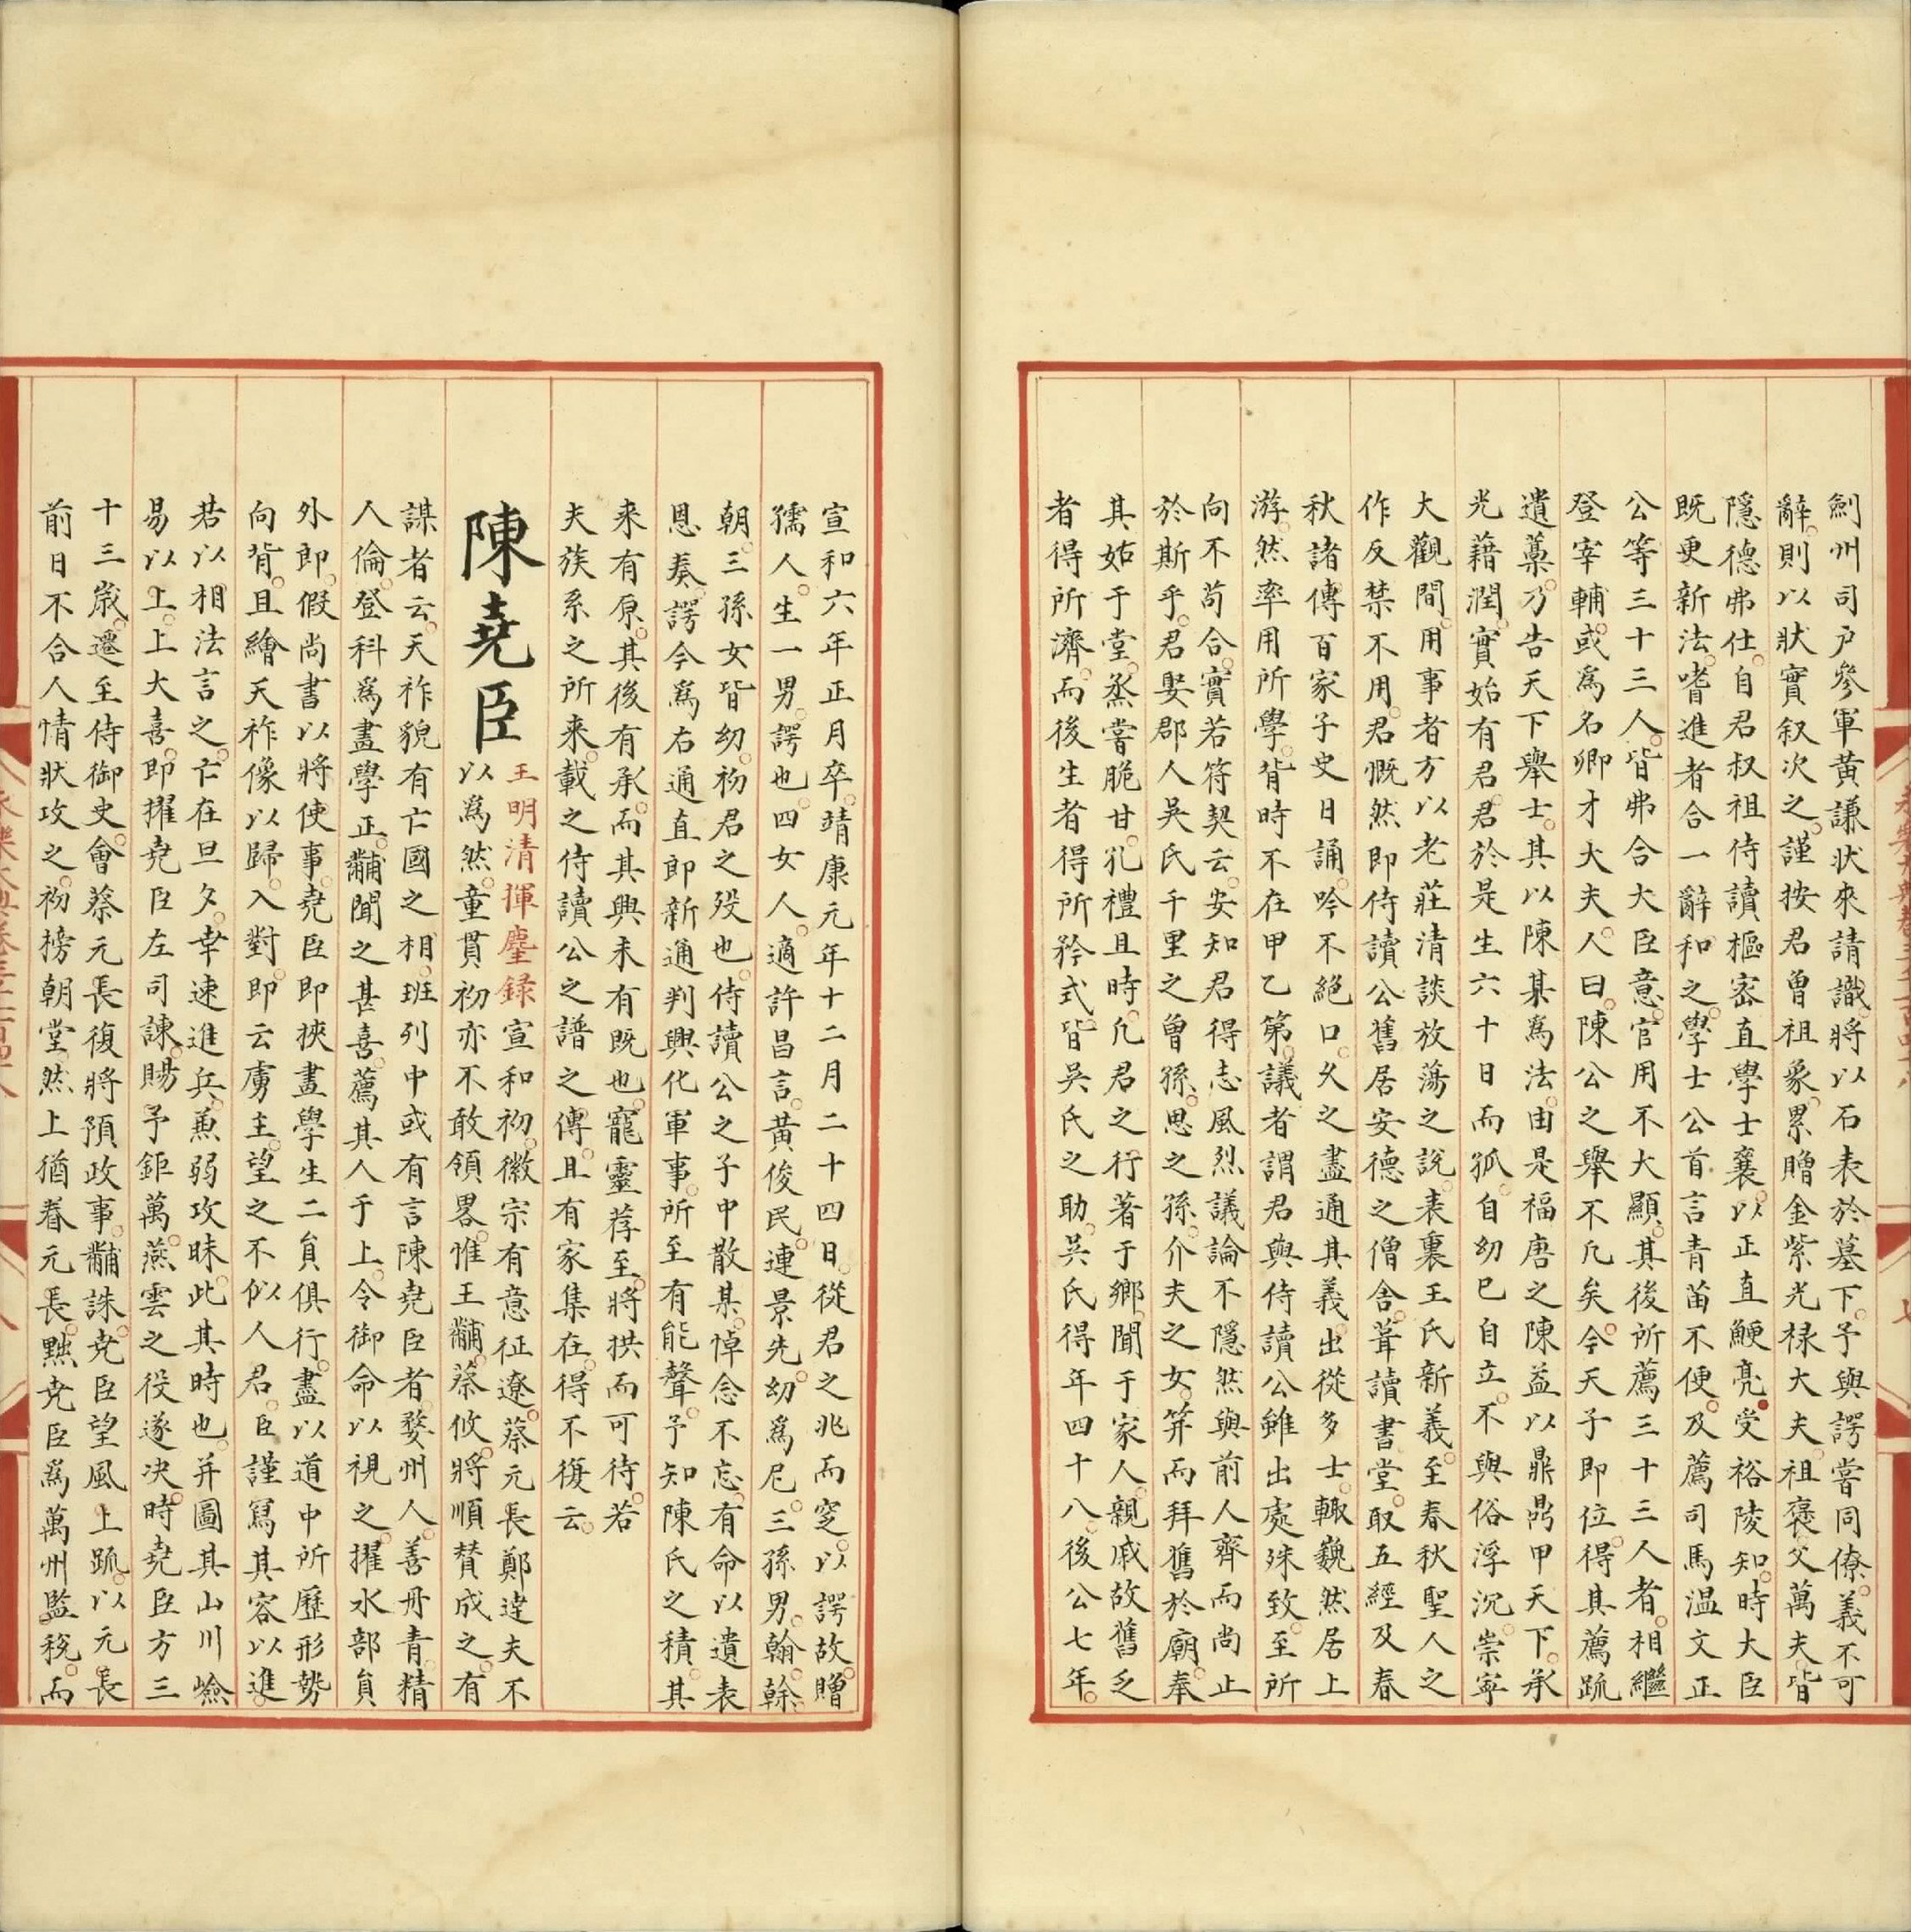 劍州司户參軍黃謙狀來請識將以石表於墓下予與諤嘗同僚義不可
辭則以狀實叙次之謹按君曾祖彖累贈金紫光祿大夫祖襃父萬夫皆
隱德弗仕自君叔祖侍讀樞宻直學士襄以正直鯁亮受裕陵知時大臣
既更新法嗜進者合一辭和之學士公首言青苗不便及薦司馬温文正
公等三十三人皆弗合大臣意官用不大顯其後所薦三十三人者相繼
登宰輔或爲名卿才大夫人曰陳公之舉不凢矣今天子即位得其薦䟽
遺藁乃告天下舉士其以陳某爲法由是福唐之陳益以鼎鼎甲天下承
光藉潤實始有君君於是生六十日而孤自幼已自立不與俗浮沉崇寜
大觀間用事者方以老莊清談放蕩之説表裏王氏新義至春秋聖人之
作反禁不用君慨然即侍讀公舊居安德之僧舍葺讀書堂取五經及春
秋諸傳百家子史日誦吟不絕口久之盡通其義出從多士輙巍然居上
游然率用所學背時不在甲乙第議者謂君與侍讀公雖出處殊致至所
向不苟合實若符契云安知君得志風烈議論不隱然與前人齊而尚止
於斯乎君娶郡人吳氏千里之曾孫思之孫介夫之女笄而拜舊於廟奉
其姑于堂烝嘗脆甘礼禮且時凢君之行著于鄉聞于家人親戚故舊乏
者得所濟而後生者得所矜式皆吳氏之助吳氏得年四十八後公七年
宣和六年正月卒靖康元年十二月二十四日從君之兆而窆以諤故贈
孺人生一男諤也四女人適許昌言黃俊民連景先幼爲尼三孫男翰榦
朝三孫女皆幼初君之殁也侍讀公之子中散某悼念不忘有命以遺表
恩奏諤今爲右通直郎新通判興化軍事所至有能聲予知陳氏之積其
来有原其後有承而其興未有既也寵靈荐至將拱而可待若
夫族系之所来載之侍讀公之譜之傳且有家集在得不復云
陳堯臣
王明清揮麈錄宣和初徽宗有意征遼蔡元長鄭達夫不
以爲然童貫初亦不敢領畧惟王黼蔡攸將順賛成之有
謀者云天祚貌有亡國之相班列中或有言陳堯臣者婺州人善丹青精
人倫登科爲畫學正黼聞之甚喜薦其人于上令御命以視之擢水部員
外郎假尚書以將使事堯臣即挾畫學生二員俱行盡以道中所歷形勢
向背且繪天祚像以歸入對即云虜主望之不似人君臣謹寫其容以進
若以相法言之亡在旦夕幸速進兵兼弱攻昧此其時也并圖其山川嶮
易以上上大喜即擢堯臣左司諫賜予鉅萬燕雲之役遂决時堯臣方三
十三歲遷至侍御史會蔡元長復將預政事黼誅堯臣望風上䟽以元長
前日不合人情狀攻之初榜朝堂然上猶眷元長黜堯臣爲萬州監稅而